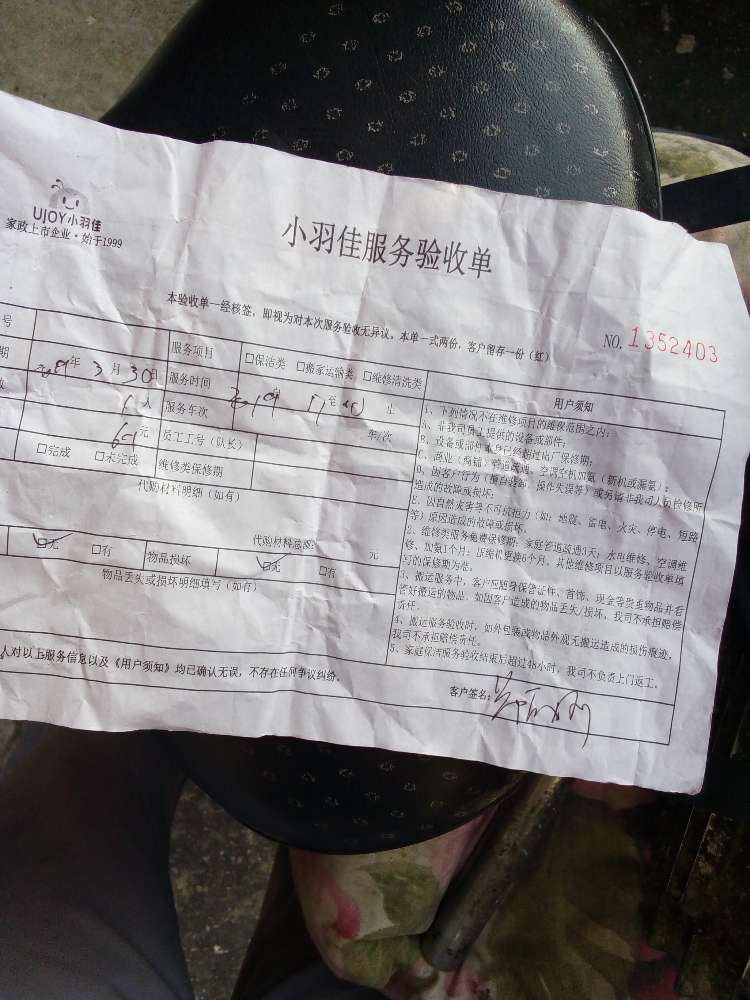 UJOY小羽佳
家政上市企业·始于1999
小羽佳服务验收单
本验收单一经核签，即视为对本次服务验收无异议。本单一式两份，客户留存一份（红）
NO. 1352403
号
服务项目 □保洁类 □搬家运输类 □维修清洗类
期 年3月30日 服务时间 至
数 人 服务车次 车/次
元 员工工号（队长）
□完成 □未完成 维修类保修期
代购材料明细（如有）
代购材料总额: 元
□无 □有 物品损坏 □无 □有
物品丢失或损坏明细填写（如有）
人对以上服务信息以及《用户须知》均已确认无误，不存在任何争议纠纷。
用户须知
1、下列情况不在维修项目的维保范围之内：
A、非我司员工提供的设备或部件；
B、设备或部件本身已经超过出厂保修期；
C、商业（商铺）管道疏通、空调空机加氨（新机或漏氨）；
D、因客户行为（擅自拆卸、操作失误等）或另请非我司人员检修所
造成的故障或损坏；
E、因自然灾害等不可抗拒力（如：地震、雷电、火灾、停电、短路
等）原因造成的故障或损坏。
2、维修类服务免费保修期：家庭管道疏通3天；水电维修、空调维
修、加氨1个月；压缩机更换6个月，其他维修项目以服务验收单填
写的保修期为准。
3、搬运服务中，客户应随身保管证件、首饰、现金等贵重物品并看
管好搬运的物品，如因客户造成的物品丢失/损坏，我司不承担赔偿
责任。
4、搬运服务验收时，如外包装或物品外观无搬运造成的损伤痕迹，
我司不承担赔偿责任。
5、家庭保洁服务验收结束后超过48小时，我司不负责上门返工。
客户签名：